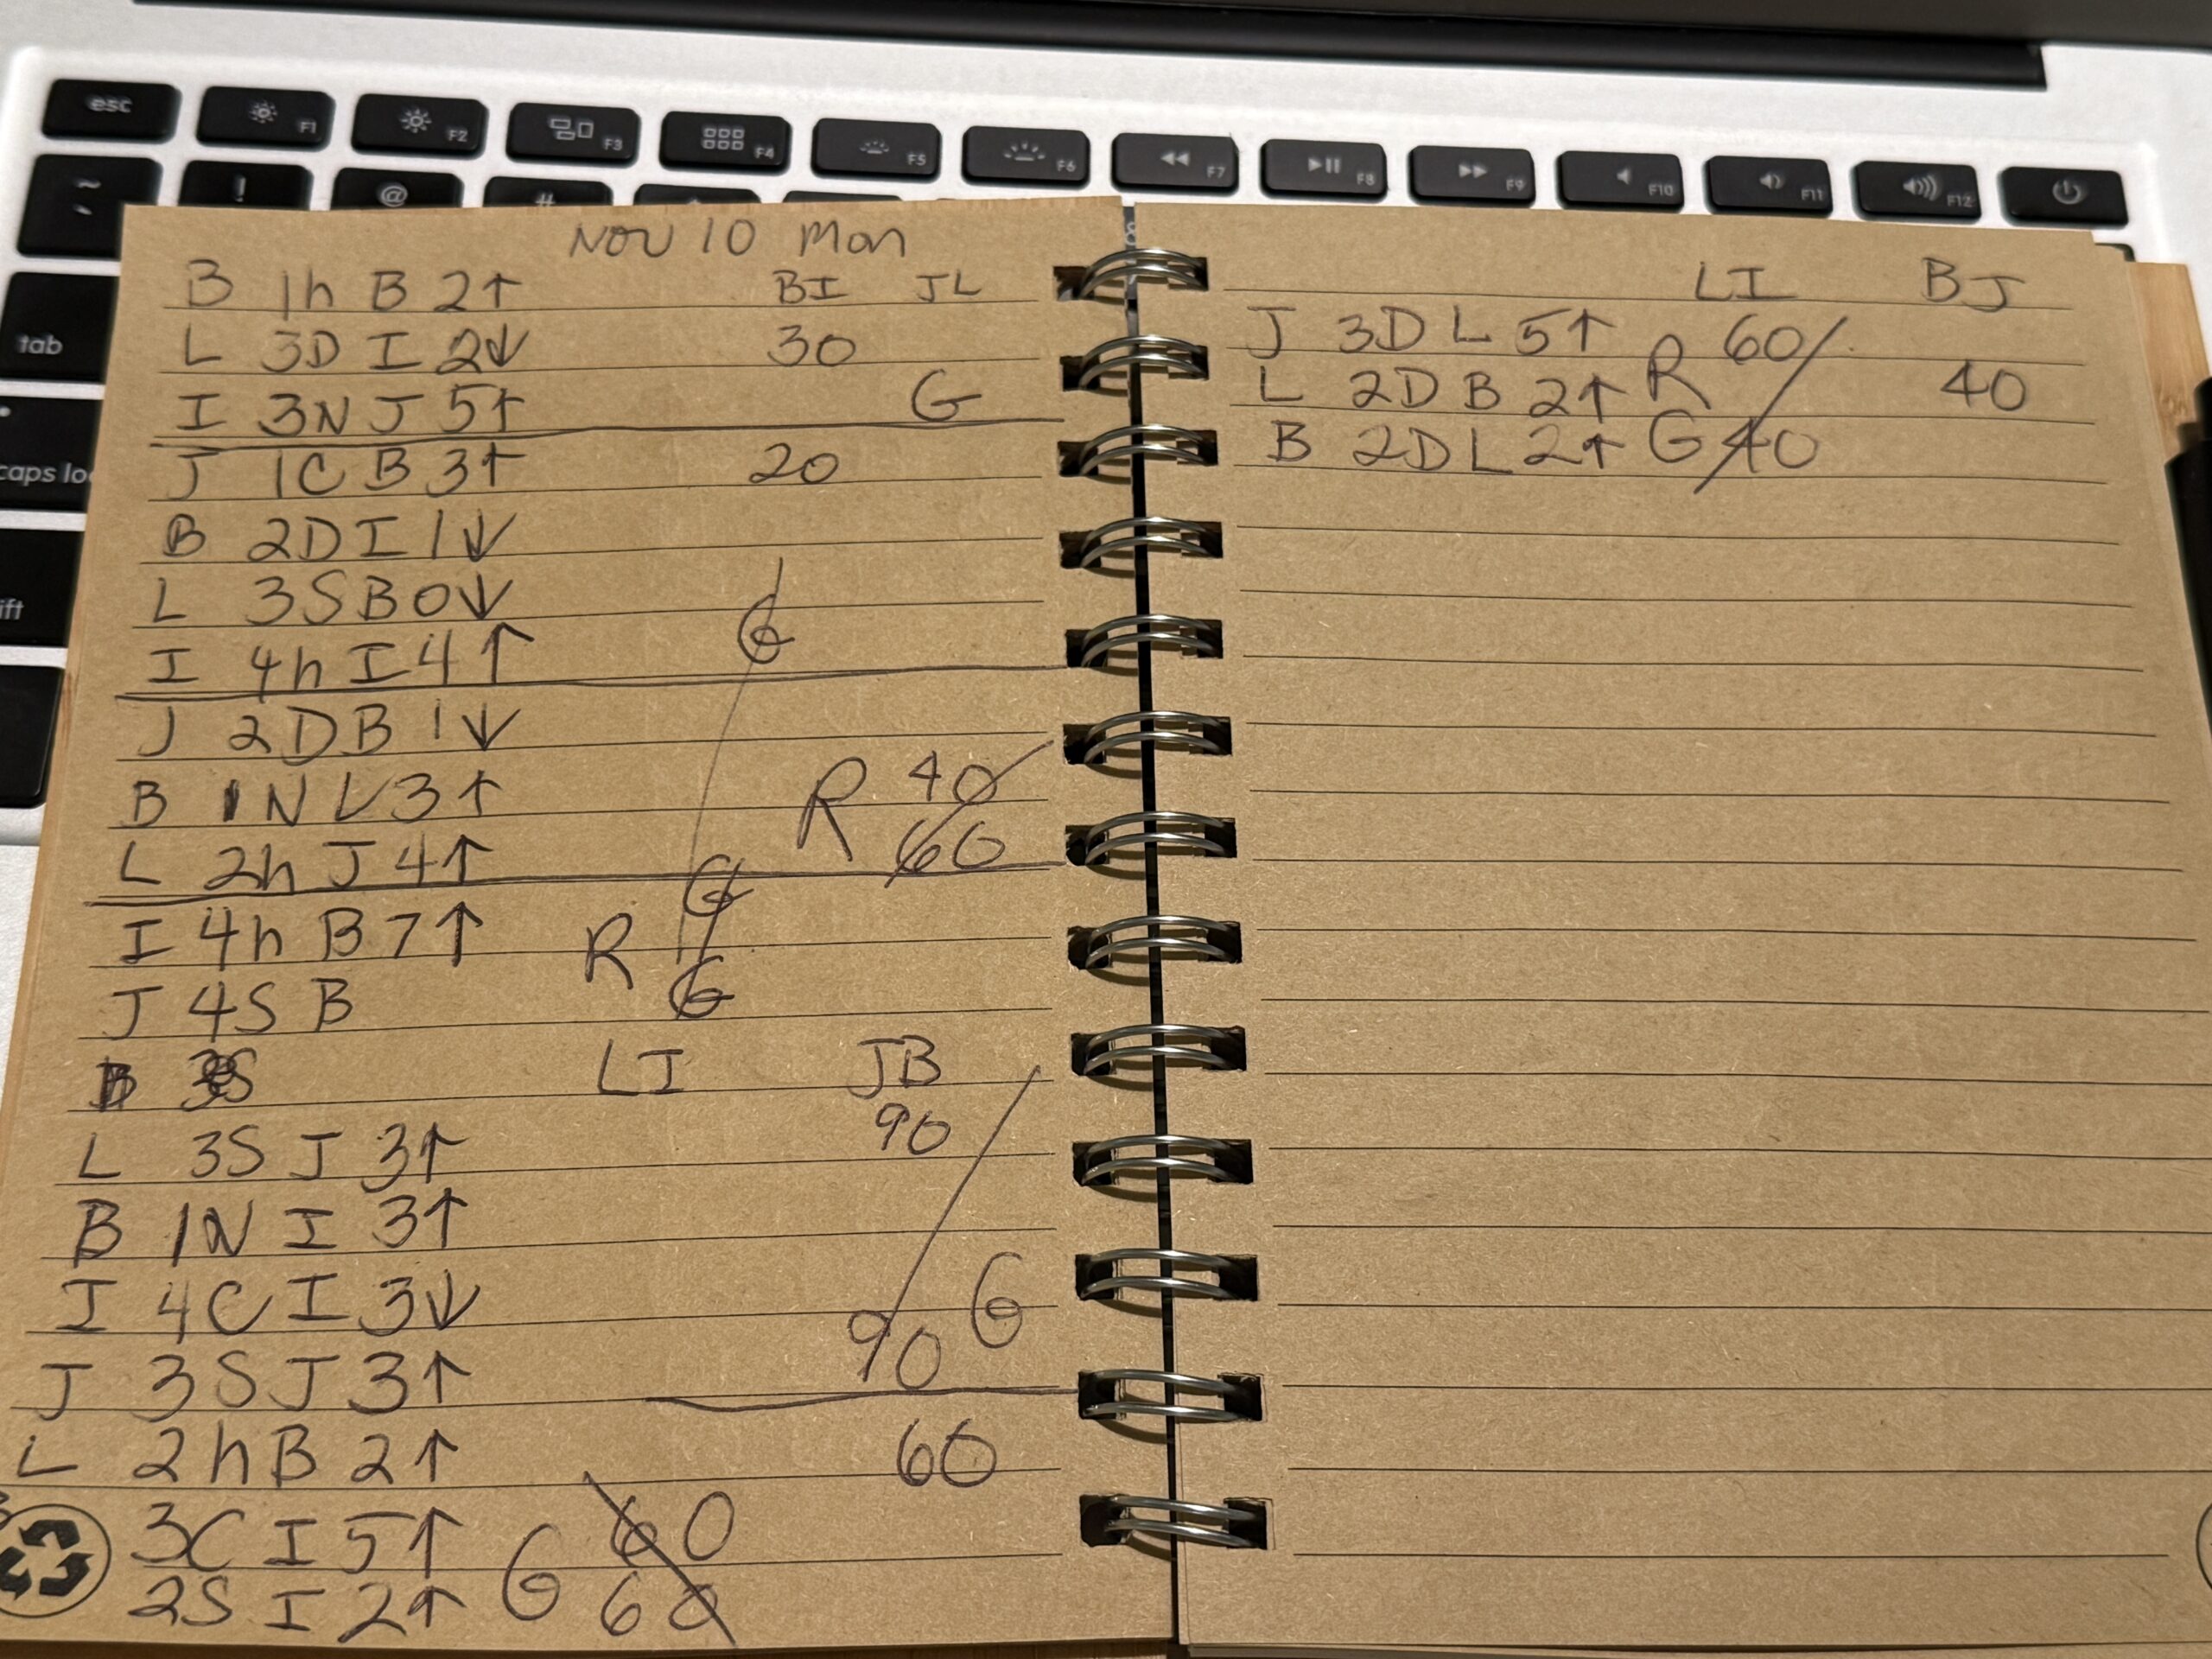 esc F1 F2 F3 F4 F5 F6 F7 F8 F9 F10 F11 F12
~ ! @ #
tab
caps lo
ift
NOV 10 Mon
B 1h B 2↑ BI JL
L 3D I 2↓ 30
I 3N J 5↑ G
J 1C B 3↑ 20
B 2D I 1↓
L 3S B 0↓ G
I 4h I 4↑
J 2D B 1↓
B 1N L 3↑ R 40
L 2h J 4↑ 60
I 4h B 7↑ R G
J 4S B G
B 3S LI JB
90
L 3S J 3↑
B 1N I 3↑
I 4C I 3↓ G
J 3S J 3↑ 90
L 2h B 2↑ 60
3C I 5↑ 60
2S I 2↑ G 60
LI BJ
J 3D L 5↑ 60
L 2D B 2↑ R 40
B 2D L 2↑ G 40